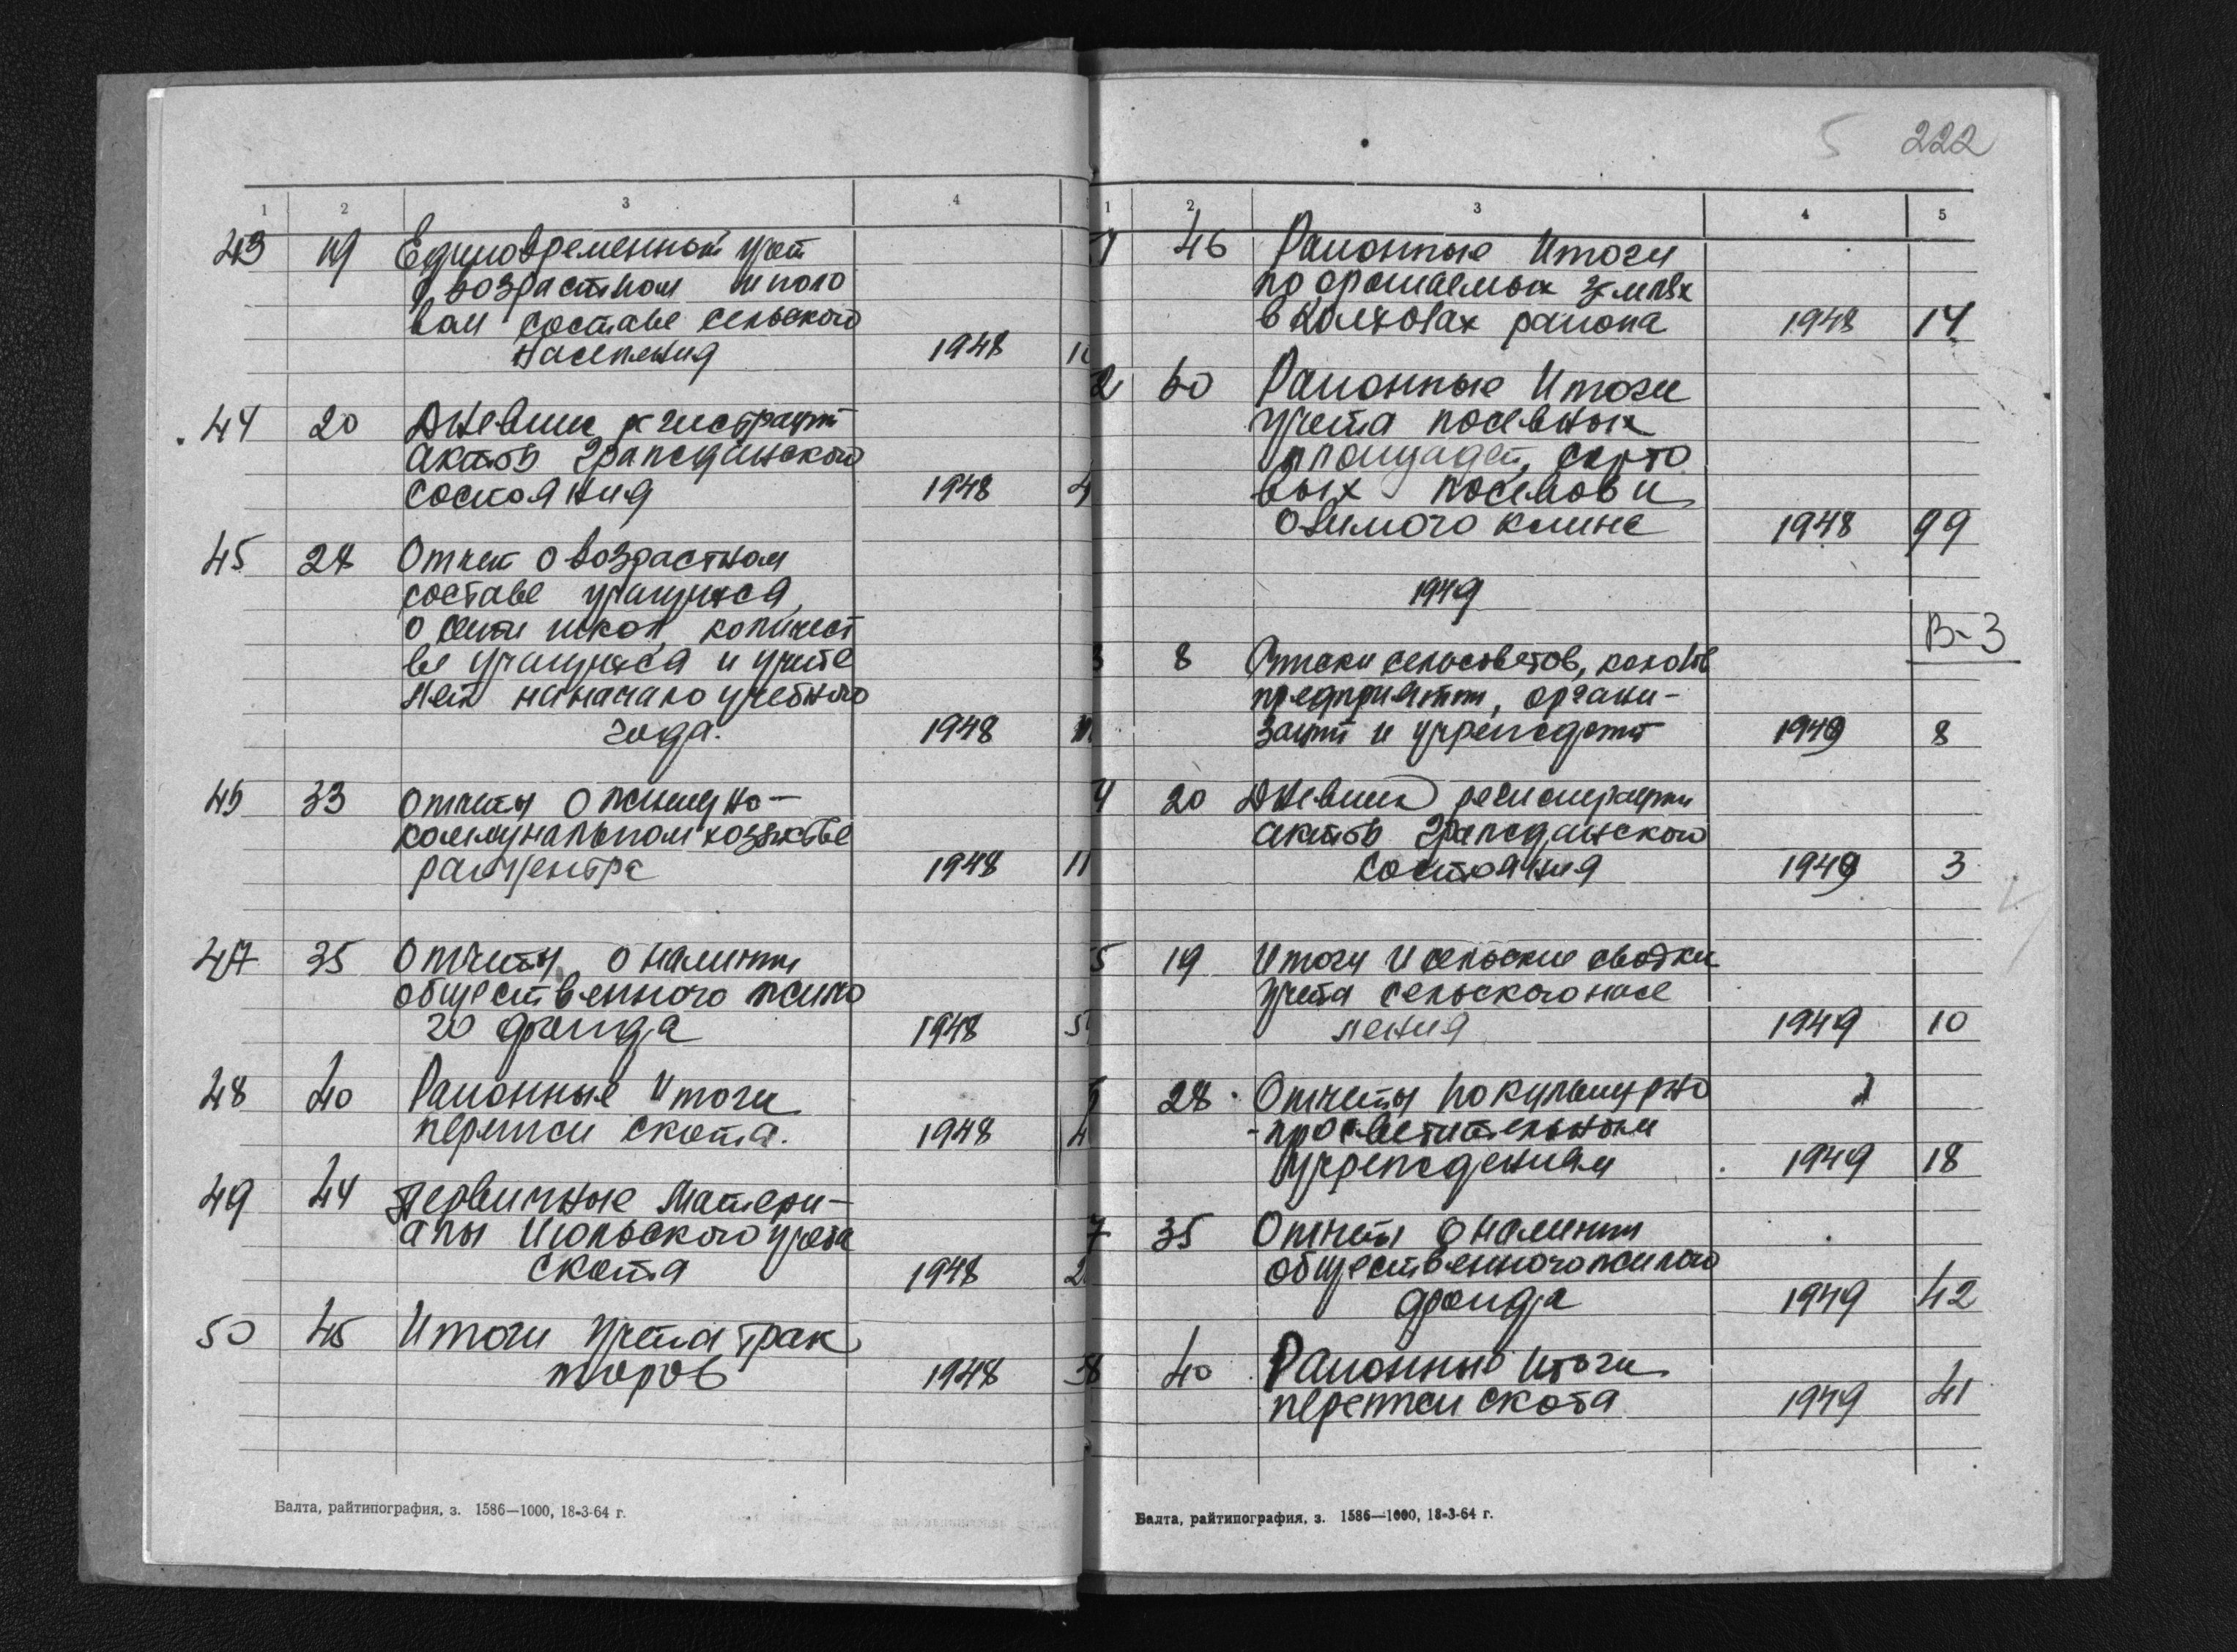 1 2 3 4
43 19 Единовременный учет
о возрастном и поло
вом составе сельского
населения 1948
44 20 Дневник регистраций
актов гражданского
состояния 1948 4
45 28 Отчет о возрастном
составе учащихся,
о сети школ, количест
ве учащихся и учите
лей на начало учебного
года. 1948
46 33 Отчеты о жилищно-
коммунальном хозяйстве
райцентра 1948 11
47 35 Отчеты о наличии
общественного жило
го фонда 1948
48 40 Районные Итоги
переписи скота. 1948
49 44 Первичные матери-
алы Июльского учета
скота 1948
50 45 Итоги учета трак
торов 1948
Балта, райтипография, з. 1586—1000, 18-3-64 г.
5 222
1 2 3 4 5
46 Районные Итоги
по орошаемых землях
в колхозах района 1948 14
2 50 Районные Итоги
учета посевных
площадей, сорто
вых посевов и
озимого клина 1948 99
1949
В-3
3 8 Списки сельсоветов, колхозов
предприятий, органи-
заций и учреждений 1949 8
4 20 Дневник регистрации
актов гражданского
состояния 1949 3
5 19 Итоги и сельские сводки
учета сельского насе
ления 1949 10
28 Отчеты по культурно
-просветительным
учреждениям 1949 18
7 35 Отчеты о наличии
общественного жилого
фонда 1949 42
40 Районные итоги
переписи скота 1949 41
Балта, райтипография, з. 1586—1000, 18-3-64 г.